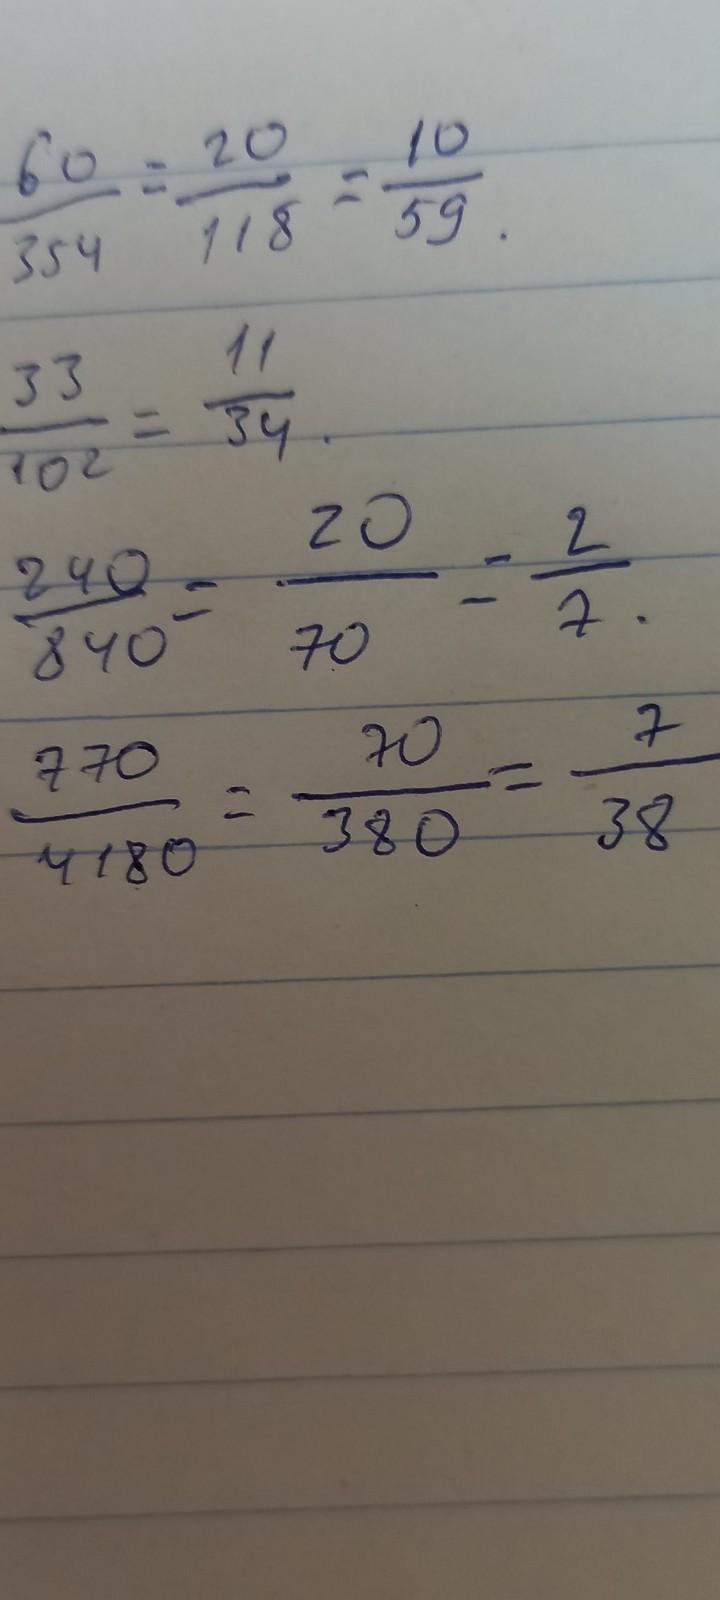 60/354 = 20/118 = 10/59.
33/102 = 11/34.
240/840 = 20/70 = 2/7.
770/4180 = 70/380 = 7/38